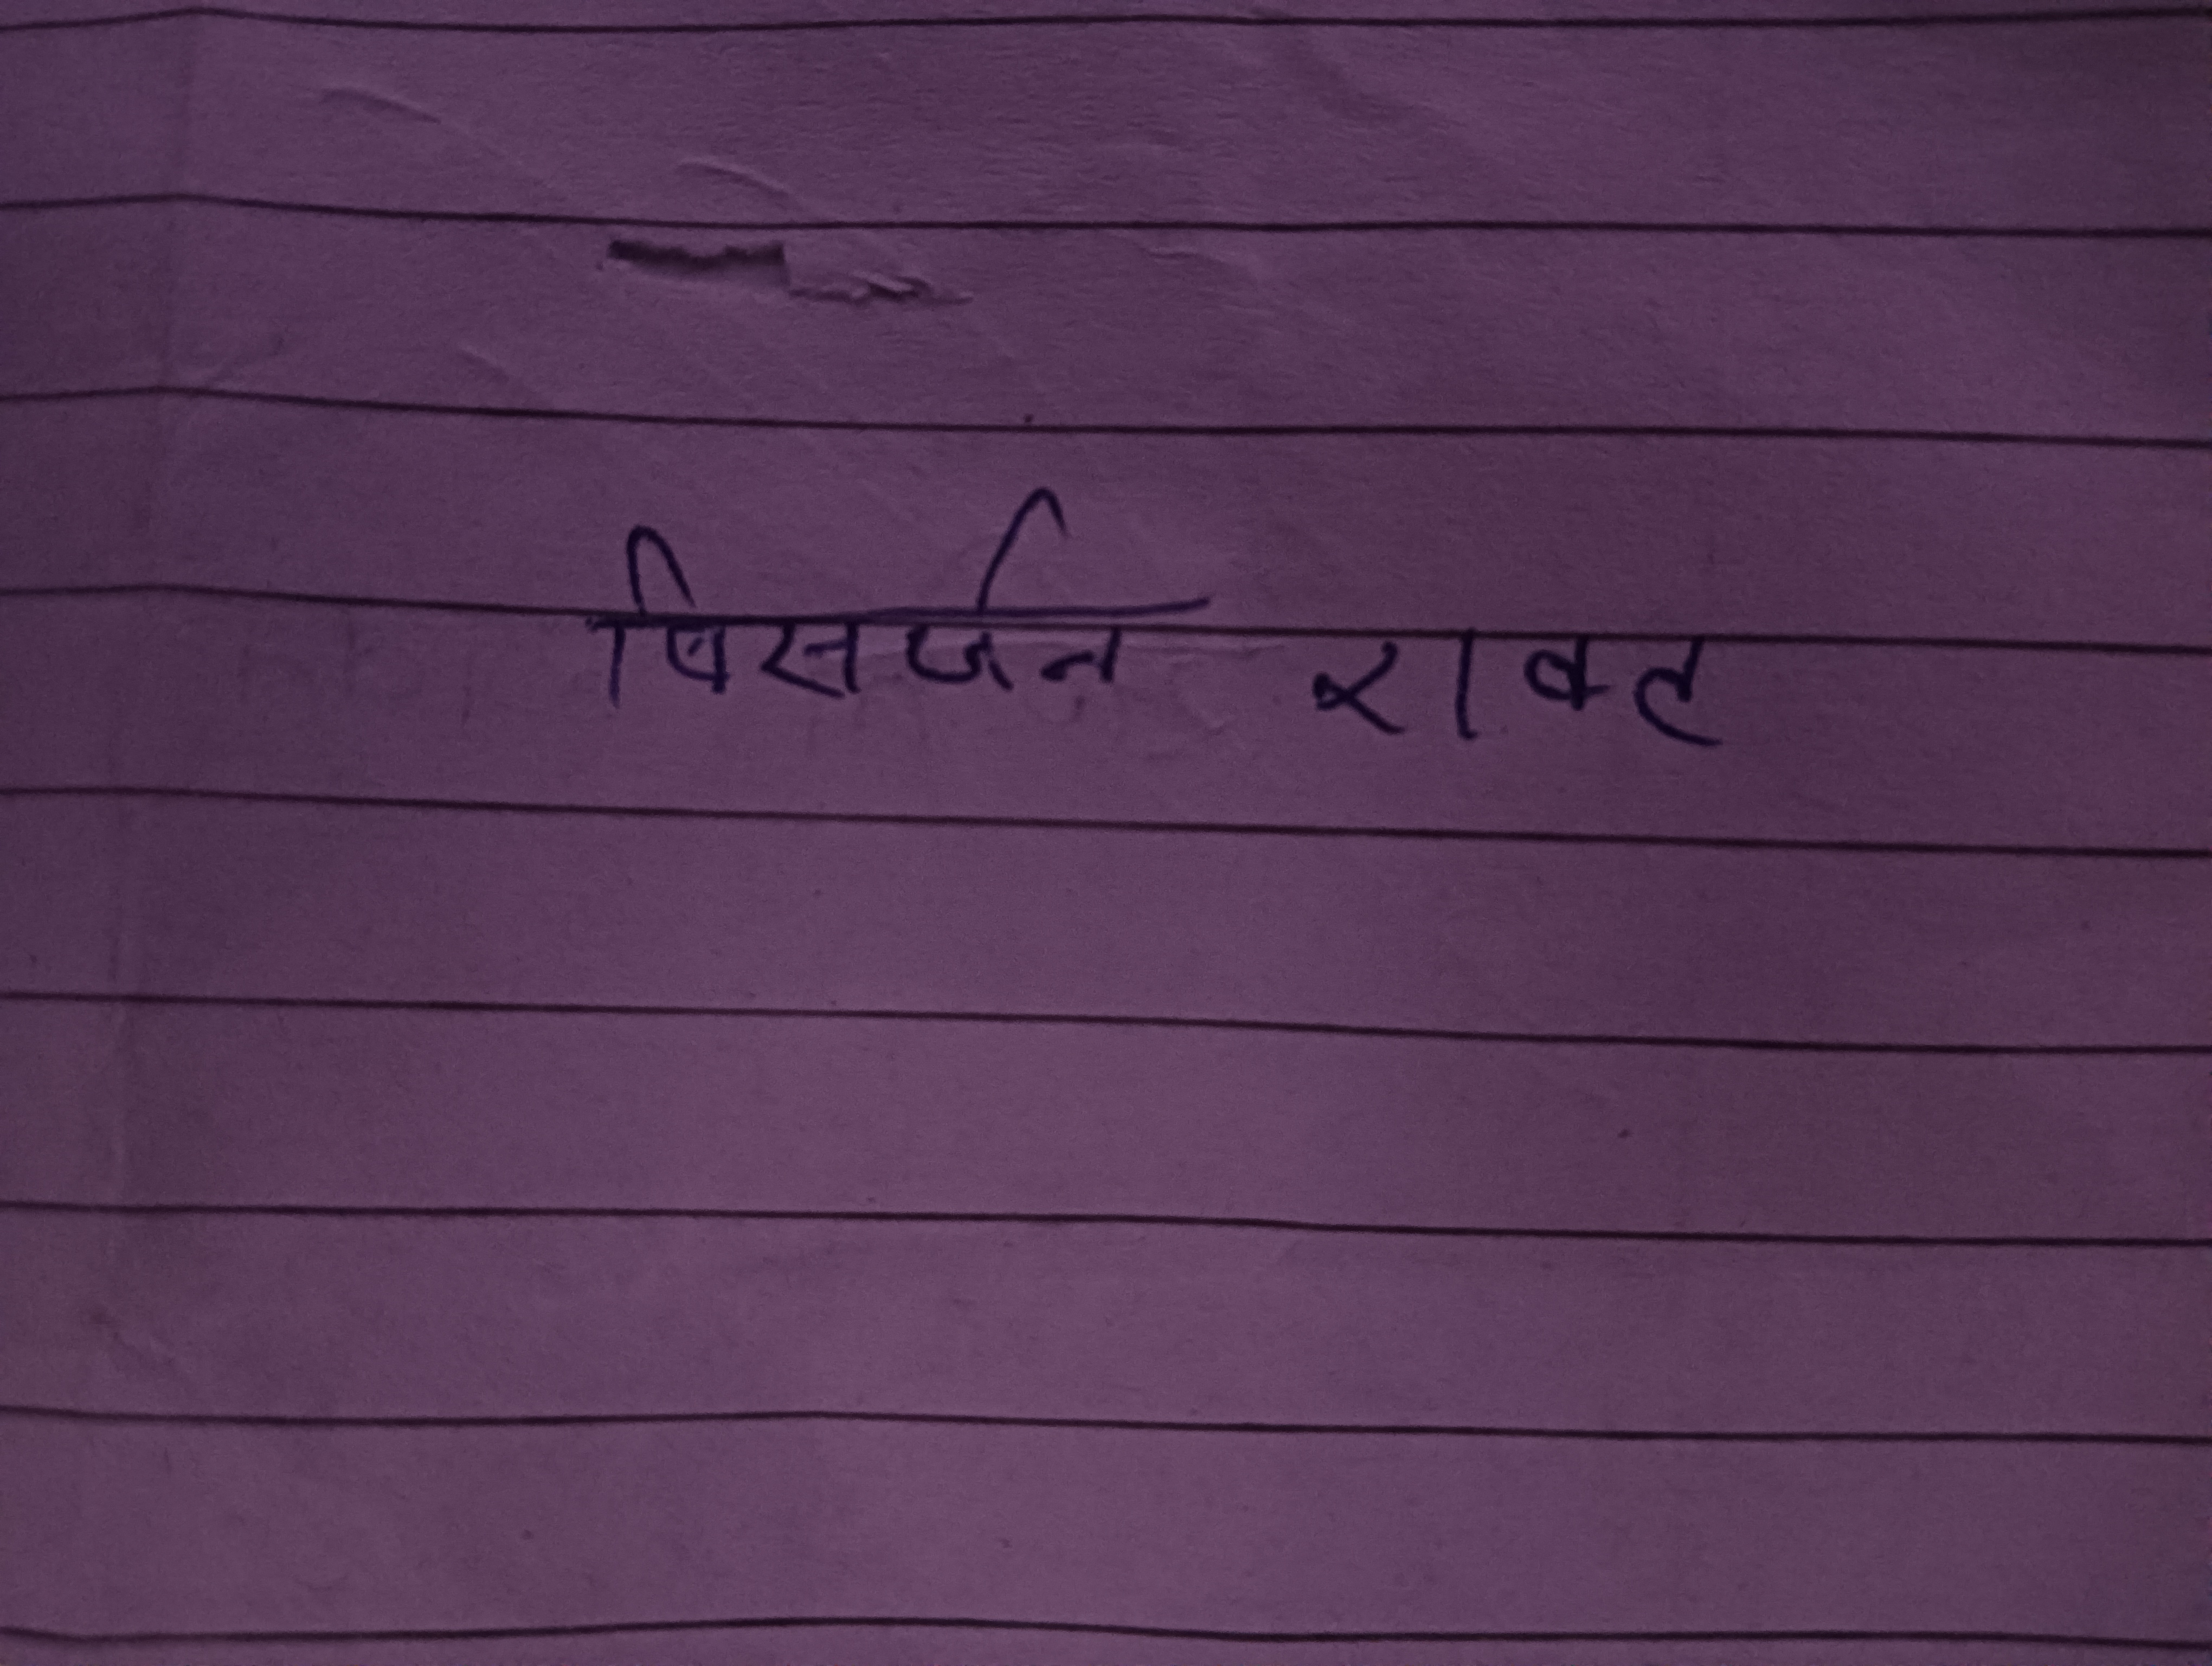 विसर्जन रावत